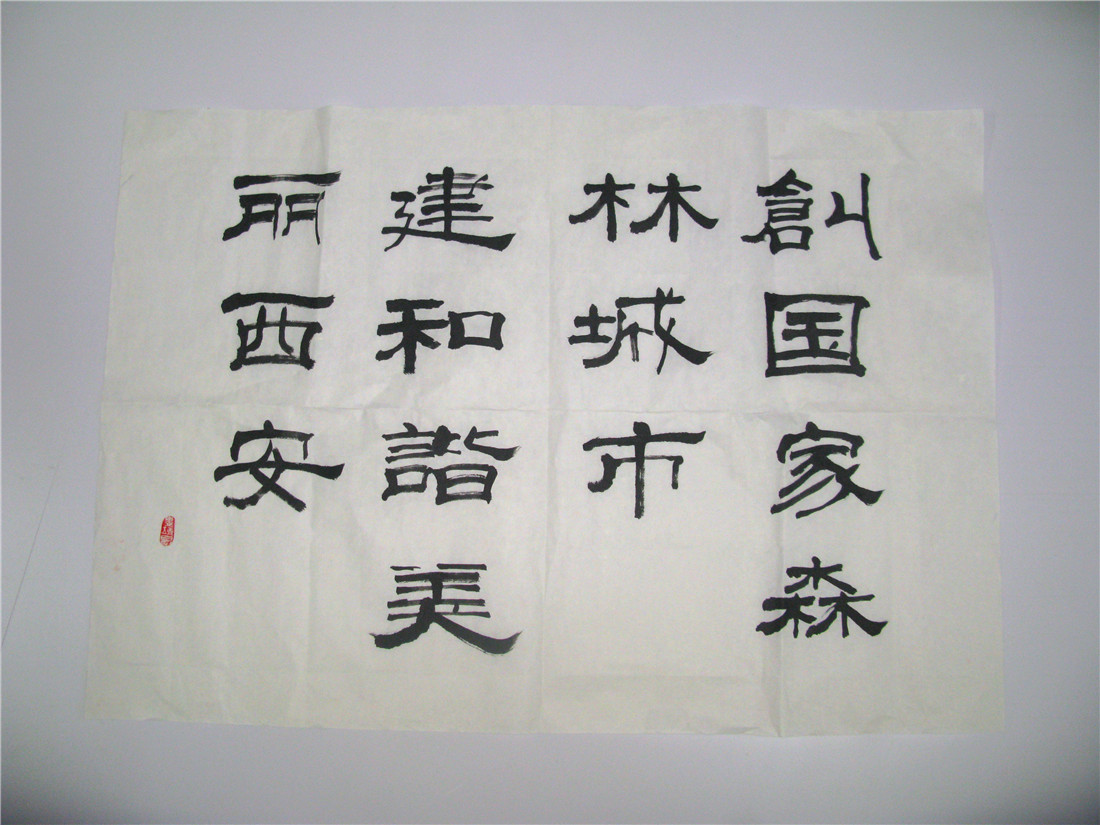 創国家森
林城市
建和諧美
丽西安